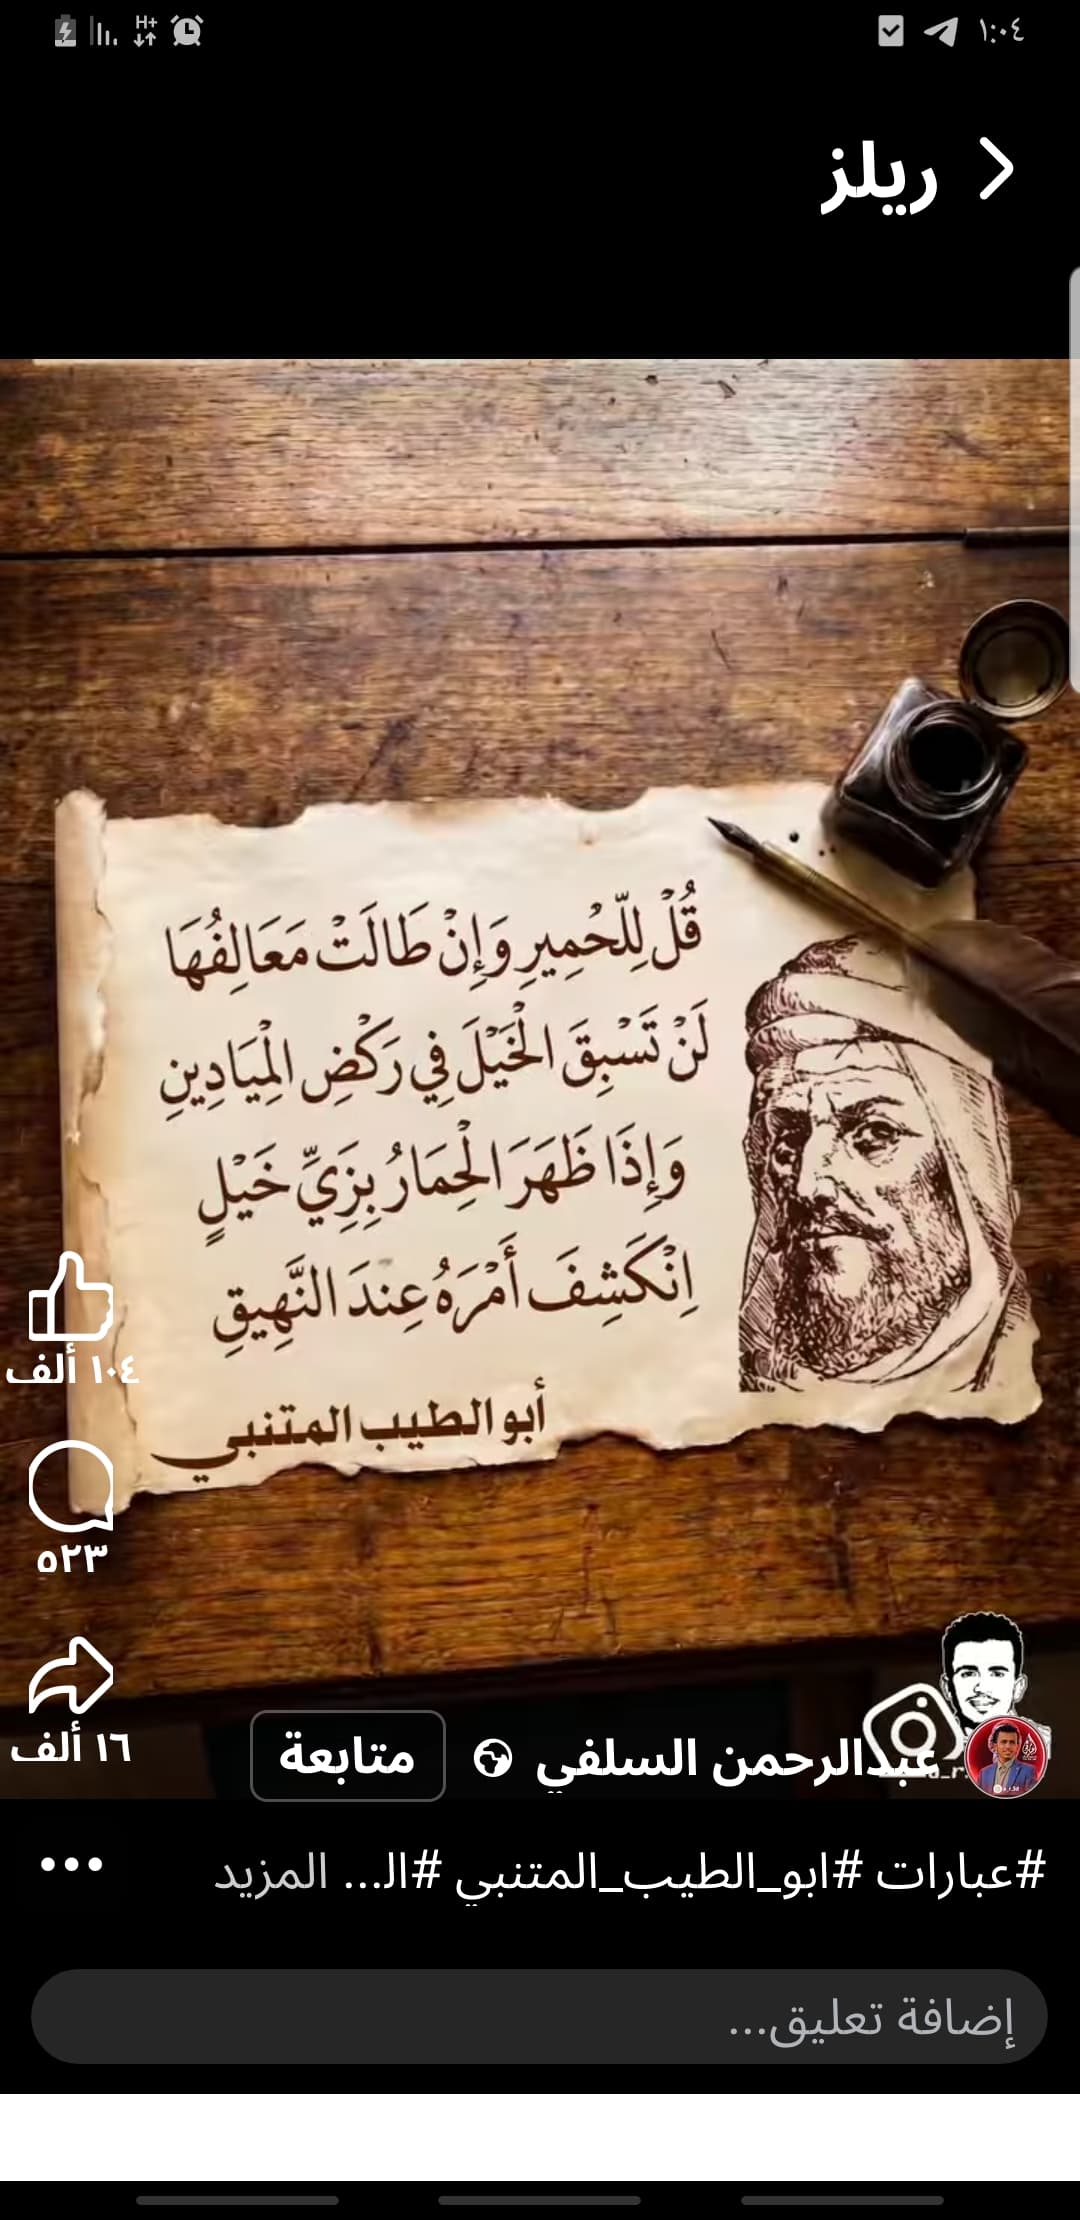 ١:٠٤
H+
ريلز
قُلْ لِلْحَمِيرِ وَإِنْ طَالَتْ مَعَالِفُهَا
لَنْ تَسْبِقَ الْخَيْلَ فِي رَكْضِ الْمَيَادِينِ
وَإِذَا ظَهَرَ الْحِمَارُ بِزَيِّ خَيْلٍ
اِنْكَشِفَ أَمْرَهُ عِندَ النَّهِيقِ
أبو الطيب المتنبي
١٠٤ ألف
٥٢٣
١٦ ألف
عبدالرحمن السلفي
متابعة
#عبارات #ابو_الطيب_المتنبي #ال... المزيد
إضافة تعليق...